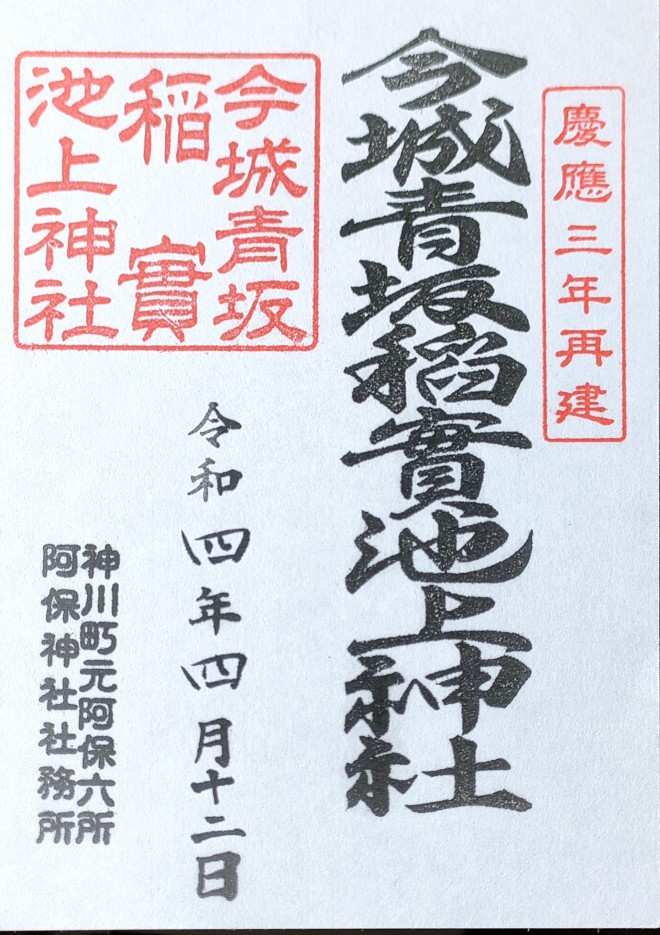 慶應三年再建
今城青坂稻實池上神社
今城青坂
稲實
池上神社
令和四年四月十二日
神川町元阿保六所
阿保神社社務所